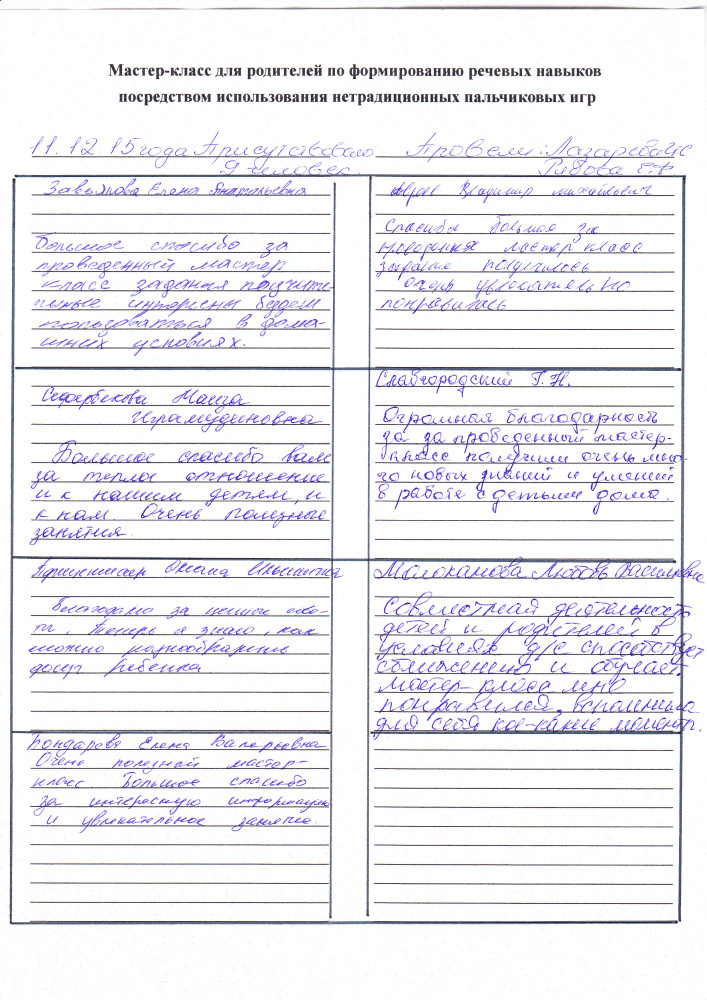 Мастер-класс для родителей по формированию речевых навыков
посредством использования нетрадиционных пальчиковых игр
11.12.15 года Присутствовало Провели: Лазарева
9 человек. Рябова Е.Ф
Завьялова Елена Анатольевна
Большое спасибо за
проведенный мастер
класс задания поучите-
льные интересны будем
пользоваться в дома-
шних условиях.
Владимир Михайлович
Спасибо большое за
мастер класс
задание получилось
очень увлекательно
понравилось
Сеферbekова Наиза
Играмудиновна
Большое спасибо вам
за теплое отношение
и к нашим детям, и
к нам. Очень полезные
занятия.
Славгородский Г.Н.
Огромная благодарность
за за проведенный мастер-
класс получили очень мно-
го новых знаний и умений
в работе с детьми дома.
Оксана Ильинична
Благодарю за ценные сове-
ты. Теперь я знаю, как
можно разнообразить
досуг ребенка.
Молоканова Любовь Васильевна
Совместная деятельность
детей и родителей в
условиях д/с способствует
сближению и обучает.
Мастер-класс мне
понравился, вспомнила
для себя кое-какие моменты.
Бондарева Елена Валерьевна
Очень полезный мастер-
класс Большое спасибо
за интересную информацию
и увлекательное занятие.